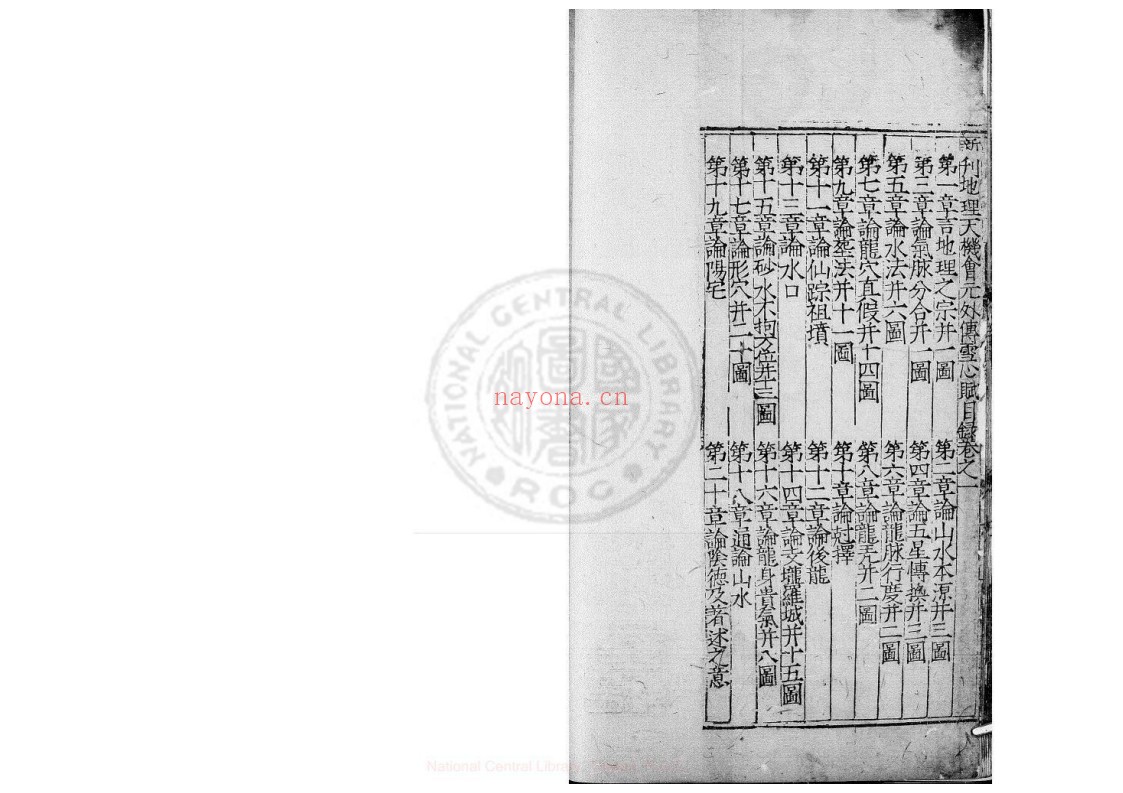 新刊地理天機會元外傳雪心賦目錄卷之一
第一章言地理之宗并一圖
第二章論山水本源并三圖
第三章論氣脉分合并一圖
第四章論五星傳換并三圖
第五章論水法并六圖
第六章論龍脉行度并二圖
第七章論龍穴真假并十四圖
第八章論龍虎并二圖
第九章論塟法并十一圖
第十章論尅擇
第十一章論仙踪祖墳
第十二章論後龍
第十三章論水口
第十四章論文壠羅城并十五圖
第十五章論砂水不拘方位并三圖
第十六章論龍身貴氣并八圖
第十七章論形穴并二十圖
第十八章通論山水
第十九章論陽宅
第二十章論陰德及著述之意
NATIONAL CENTRAL LIBRARY
ROC
國家圖書館
nayona.cn
National Central Library